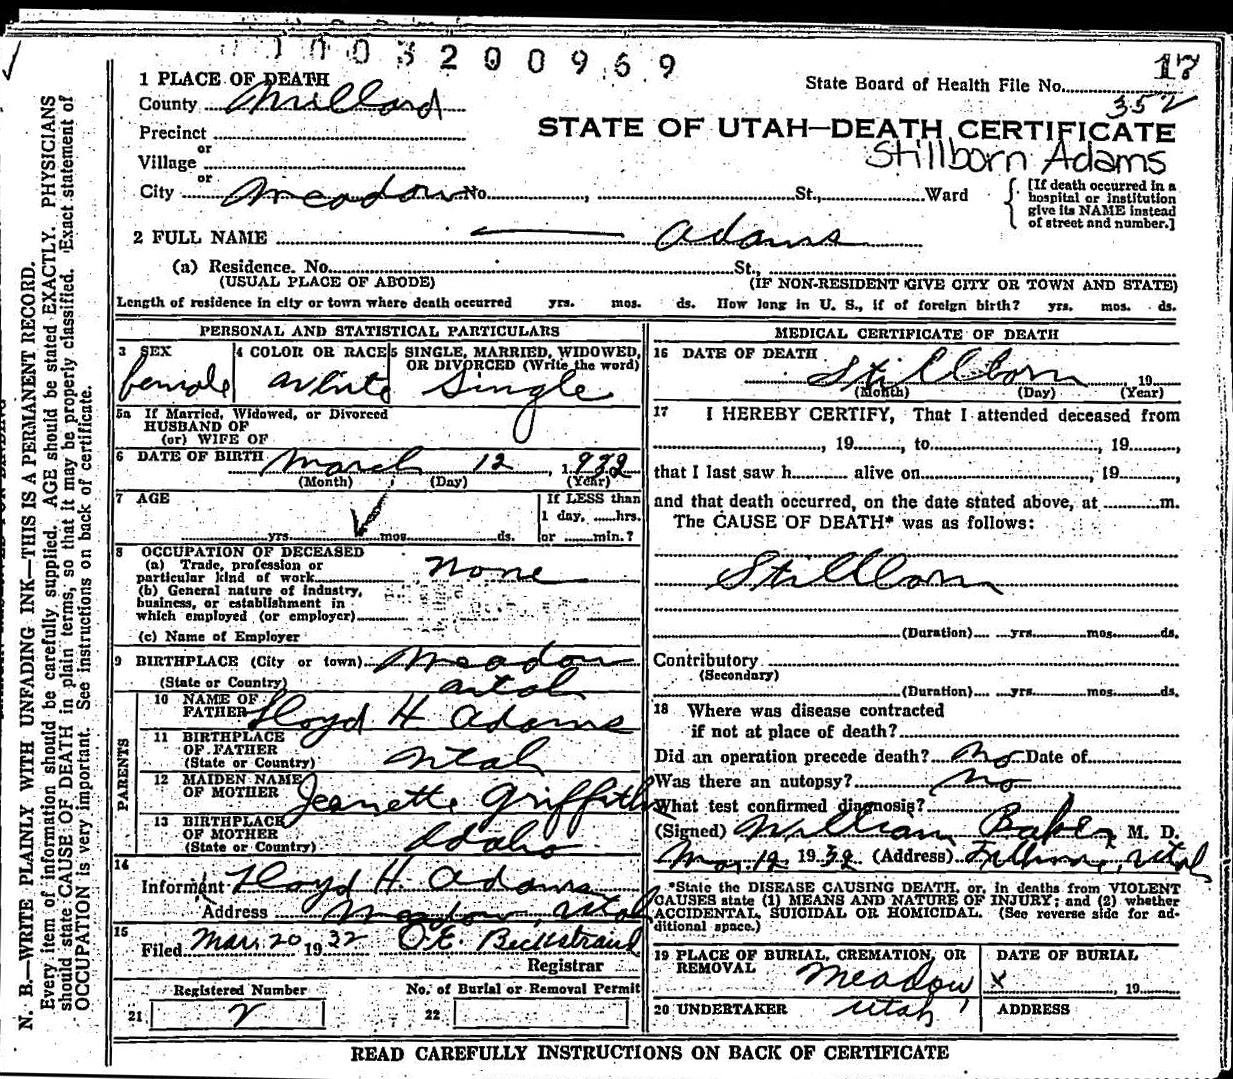 0003200969
17
State Board of Health File No.
352
1 PLACE OF DEATH
County Millard
STATE OF UTAH—DEATH CERTIFICATE
Stillborn Adams
Precinct
or
Village
or
City Meadow No. , St., Ward
[If death occurred in a hospital or institution give its NAME instead of street and number.]
2 FULL NAME — Adams
(a) Residence. No. St.,
(USUAL PLACE OF ABODE) (IF NON-RESIDENT GIVE CITY OR TOWN AND STATE)
Length of residence in city or town where death occurred yrs. mos. ds. How long in U. S., if of foreign birth? yrs. mos. ds.
PERSONAL AND STATISTICAL PARTICULARS
3 SEX
female
4 COLOR OR RACE
White
5 SINGLE, MARRIED, WIDOWED, OR DIVORCED (Write the word)
Single
5a If Married, Widowed, or Divorced
HUSBAND OF
(or) WIFE OF
6 DATE OF BIRTH March 12, 1932
(Month) (Day) (Year)
7 AGE
yrs. mos. ds.
If LESS than
1 day, hrs.
or min.?
8 OCCUPATION OF DECEASED
(a) Trade, profession or
particular kind of work None
(b) General nature of industry,
business, or establishment in
which employed (or employer)
(c) Name of Employer
9 BIRTHPLACE (City or town) Meadow
(State or Country) Utah
PARENTS
10 NAME OF FATHER Floyd H Adams
11 BIRTHPLACE OF FATHER
(State or Country) Utah
12 MAIDEN NAME OF MOTHER Jeanette Griffith
13 BIRTHPLACE OF MOTHER
(State or Country) Idaho
14
Informant Floyd H. Adams
Address Meadow, Utah
15
Filed Mar. 20 1932 O.E. Beckstrand
Registrar
Registered Number
21 2
No. of Burial or Removal Permit
22
MEDICAL CERTIFICATE OF DEATH
16 DATE OF DEATH
Stillborn, 19
(Month) (Day) (Year)
17 I HEREBY CERTIFY, That I attended deceased from
, 19 , to , 19 ,
that I last saw h alive on , 19 ,
and that death occurred, on the date stated above, at m.
The CAUSE OF DEATH* was as follows:
Stillborn
(Duration) yrs. mos. ds.
Contributory
(Secondary)
(Duration) yrs. mos. ds.
18 Where was disease contracted
if not at place of death?
Did an operation precede death? No Date of
Was there an autopsy? No
What test confirmed diagnosis?
(Signed) William Baker M. D.
Mar. 12 1932 (Address) Fillmore, Utah
*State the DISEASE CAUSING DEATH, or, in deaths from VIOLENT
CAUSES state (1) MEANS AND NATURE OF INJURY; and (2) whether
ACCIDENTAL, SUICIDAL OR HOMICIDAL. (See reverse side for ad-
ditional space.)
19 PLACE OF BURIAL, CREMATION, OR REMOVAL
Meadow
Utah
DATE OF BURIAL
x , 19
20 UNDERTAKER
ADDRESS
READ CAREFULLY INSTRUCTIONS ON BACK OF CERTIFICATE
N. B.—WRITE PLAINLY WITH UNFADING INK—THIS IS A PERMANENT RECORD.
Every item of information should be carefully supplied. AGE should be stated EXACTLY. PHYSICIANS
should state CAUSE OF DEATH in plain terms, so that it may be properly classified. Exact statement of
OCCUPATION is very important. See instructions on back of certificate.